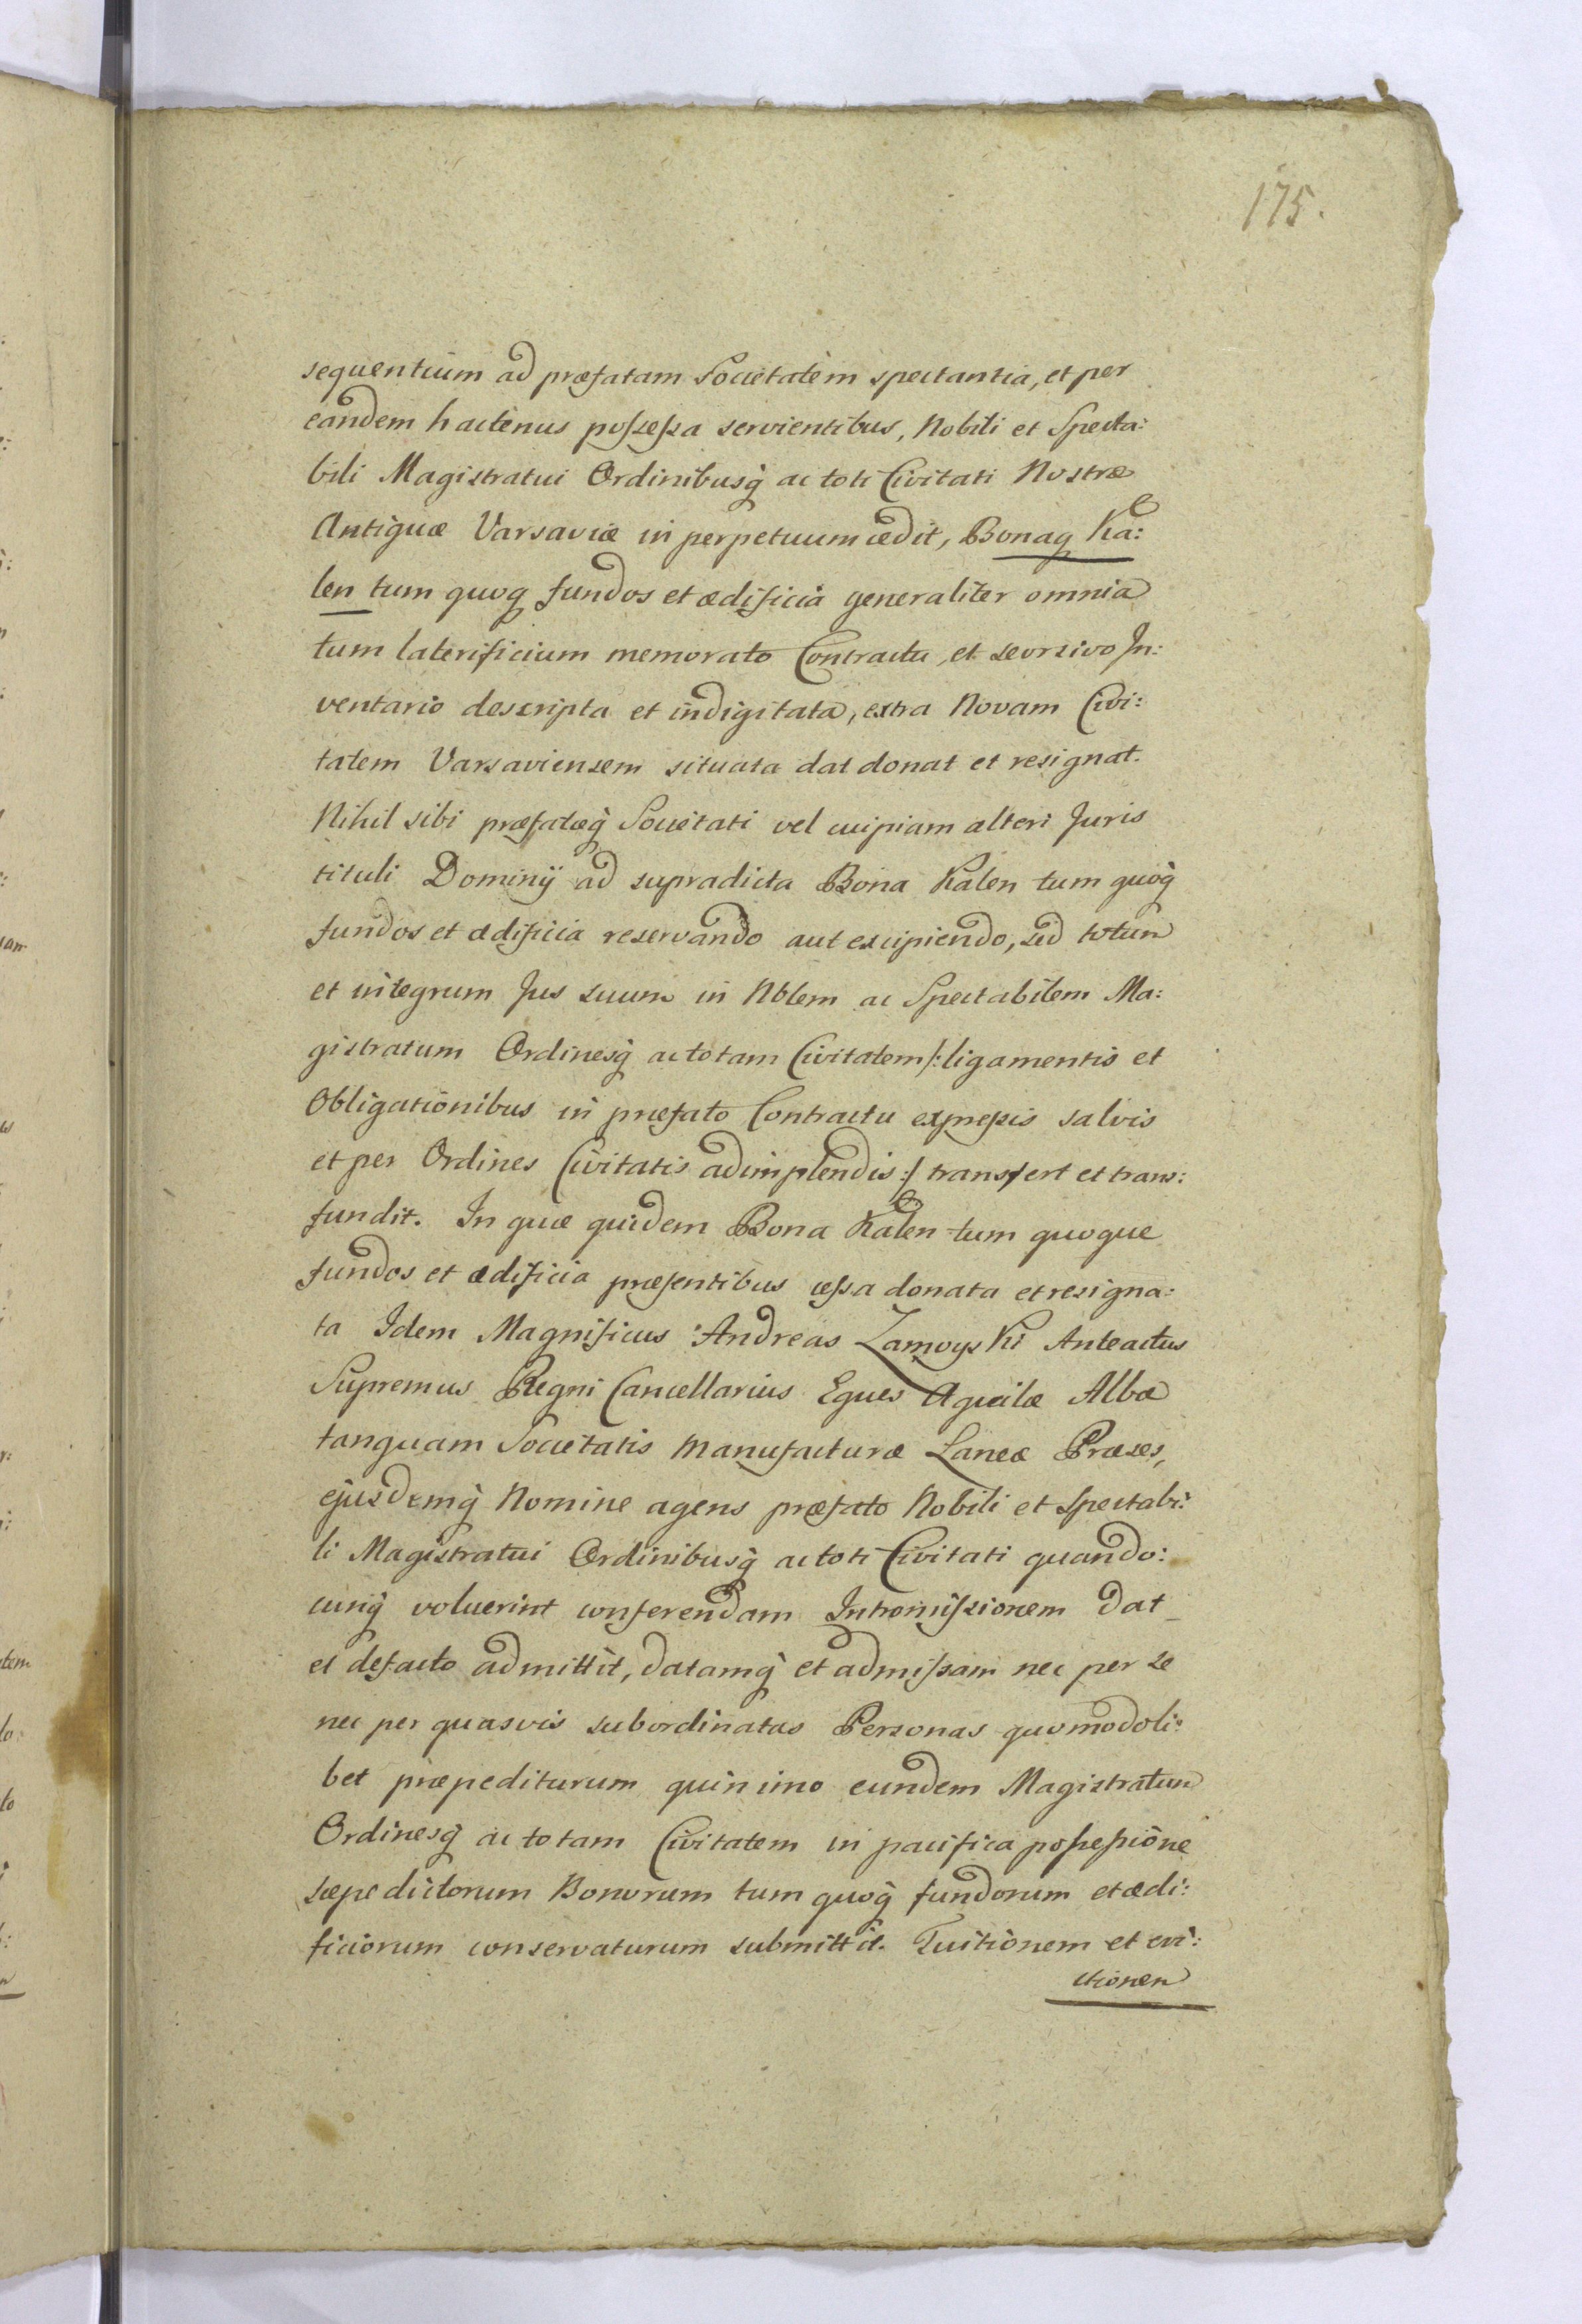 175.
sequentium ad præfatam Societatem spectantia, et per
eandem hactenus possessa servientibus, Nobili et Specta:
bili Magistratui Ordinibusq̀ ac toti Civitati Nostræ
Antiquæ Varsaviæ in perpetuum cedit, Bonaq Ka:
len tum quoq fundos et ædificia generaliter omnia
tum laterificium memorato Contractu, et seorsivo In:
ventario descripta et indigitata, extra Novam Civi:
tatem Varsaviensem situata dat donat et resignat.
Nihil sibi præfatæq̀ Societati vel cuipiam alteri Juris
tituli Dominÿ ad supradicta Bona Kalen tum quoq̀
fundos et ædificia reservando aut excipiendo, sed totum
et integrum Jus suum in Nblem ac Spectabilem Ma:
gistratum Ordinesq̀ ac totam Civitatem /: ligamentis et
Obligationibus in præfato Contractu expressis salvis
et per Ordines Civitatis adimplendis :/ transfert et trans:
fundit. In quæ quidem Bona Kalen tum quoque
fundos et ædificia præsentibus cessa donata et resigna:
ta Idem Magnificus Andreas Zamoyski Anteactus
Supremus Regni Cancellarius Eques Aquilæ Albæ
tanquam Societatis Manufacturæ Laneæ Præses,
ejusdemq̀ Nomine agens præfato Nobili et Spectabi:
li Magistratui Ordinibusq̀ ac toti Civitati quando:
cunq̀ voluerint conferendam Intromissionem dat
et defacto admittit, datamq̀ et admissam nec per se
nec per quasvis subordinatas Personas quomodoli:
bet præpediturum quinimo eundem Magistratum
Ordinesq̀ ac totam Civitatem in pacifica possessione
sæpedictorum Bonorum tum quoq̀ fundorum et ædi:
ficiorum conservaturum submittit. Tuitionem et evi:
ctionem